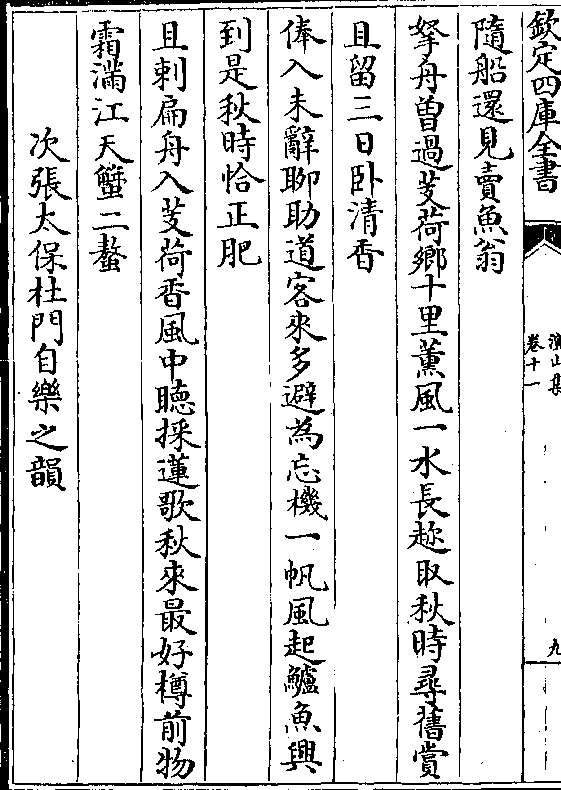 欽定四庫全書
演山集
卷十一
九
隨船還見賣魚翁
拏舟曽過芰荷鄉十里薰風一水長趂取秋時尋舊賞
且留三日卧清香
俸入未辭聊助道客來多避為忘機一帆風起鱸魚興
到是秋時恰正肥
且刺扁舟入芰荷香風中聴採蓮歌秋來最好樽前物
霜滿江天蟹二螯
次張太保杜門自樂之韻